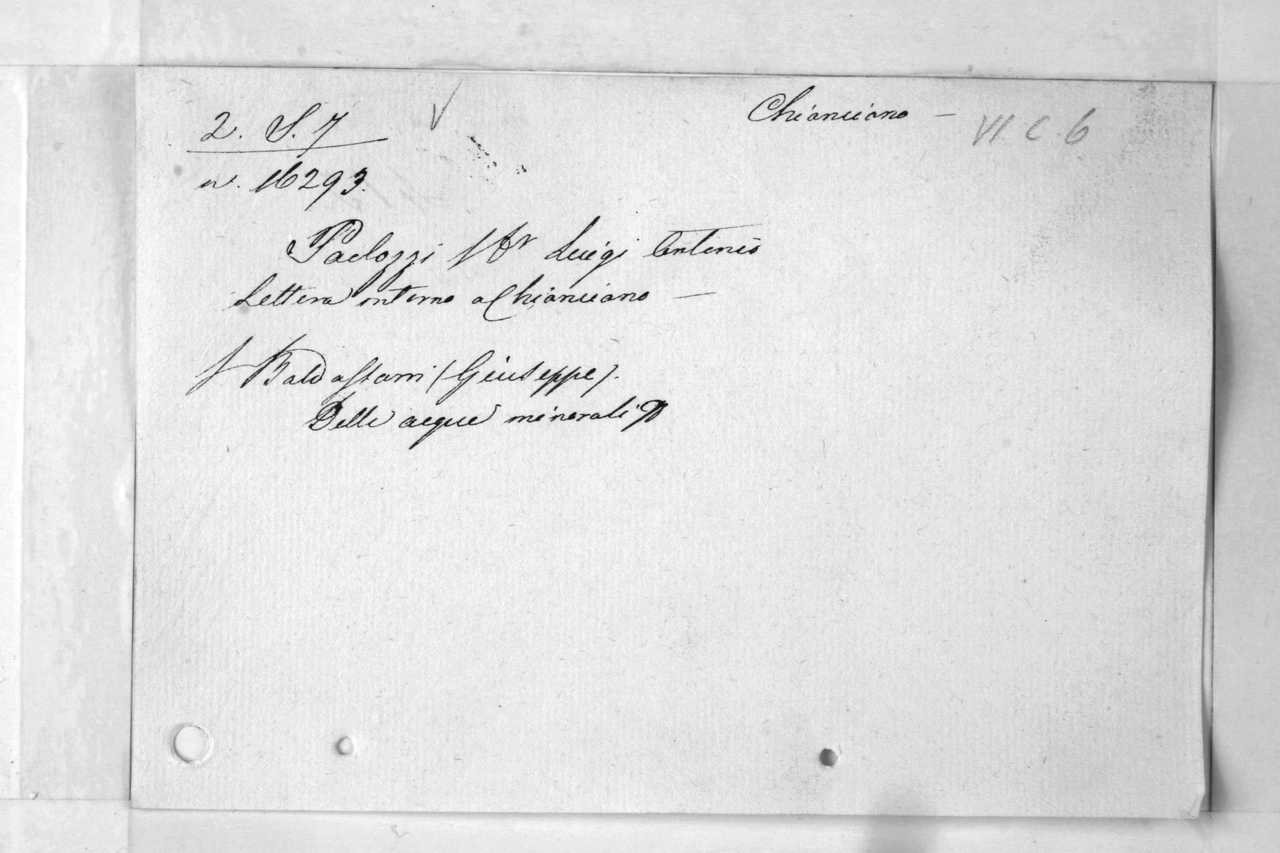 2. S. 7
Chianciano –
VI C. 6
n. 16293.
Paolozzi Luigi Antonio
Lettera intorno a Chianciano –
Baldassarri (Giuseppe).
Delle acque minerali